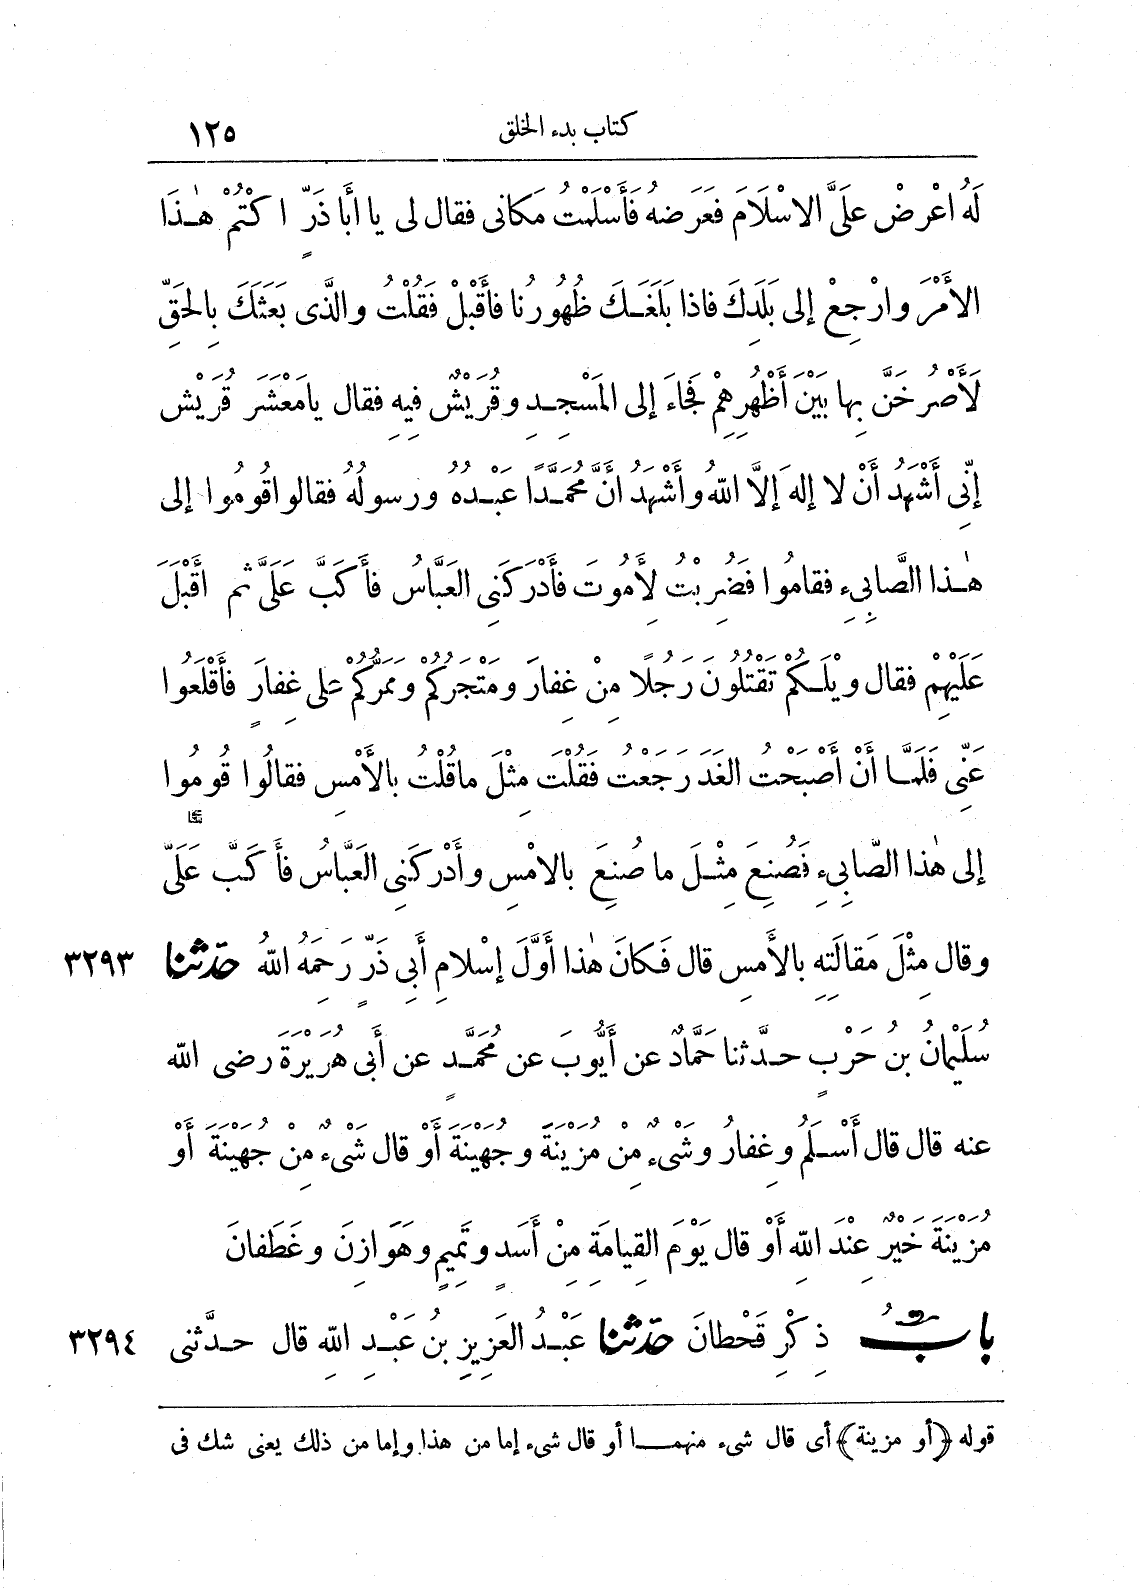 كتاب بدء الخلق ١٢٥
لَهُ اعْرِضْ عَلَىَّ الاسْلَامَ فَعَرَضَهُ فَأَسْلَمْتُ مَكانى فقال لى يا أَبا ذَرٍّ اكْتُمْ هٰـذَا
الأَمْرَ وارْجِعْ إلى بَلَدِكَ فاذا بَلَغَـكَ ظُهُورُنا فأَقْبِلْ فَقُلْتُ والَّذى بَعَثَكَ بِالحَقِّ
لَأَصْرُخَنَّ بها بَيْنَ أَظْهُرِهِمْ فَجَاءَ إلى المَسْجِـدِ وقُرَيْشٌ فِيهِ فقال يامَعْشَرَ قُرَيْش
إنِّى أَشْهَدُ أَنْ لا إلهَ إلَّا اللهُ وأَشْهَدُ انَّ مُحَمَّـدًا عَبْـدُهُ ورسولُهُ فقالوا قُومُوا إلى
هٰـذا الصَّابِىءِ فقامُوا فَضُرِبْتُ لِأَمُوتَ فَأَدْرَكَنِى العَبَّاسُ فأَكَبَّ عَلَىَّ ثم أقْبَلَ
عَلَيْهِمْ فقال ويْلَـكُمْ تَقْتُلُونَ رَجُلًا مِنْ غِفارَ ومَتْجَرُكُمْ ومَمَرُّكُمْ على غِفارٍَ فأَقْلَعُوا
عَنِّى فَلَمَّـا أَنْ أَصْبَحْتُ الغَدَ رَجَعْتُ فَقُلْتُ مِثْلَ ماقُلْتُ بالأَمْسِ فقالُوا قُومُوا
إلى هٰذا الصَّابِىءِ فَصُنِعَ مِثْـلَ ما صُنِعَ بالامْسِ وأَدْرَكَنِى العَبَّاسُ فأَكَبَّ عَلَىَّ
وقال مِثْلَ مَقالَتِهِ بالأَمسِ قال فَكانَ هٰذا أَوَّلَ إسْلامِ أَبِى ذَرٍّ رَحِمَهُ اللهُ حَدَّثَنا ٣٢٩٣
سُلَيْمانُ بنُ حَرْبٍ حـدَّثنا حَمَّادٌ عن أَيُّوبَ عن مُحَمَّـدٍ عن أَبى هُرَيْرَةَ رضى الله
عنه قال قال أَسْـلَمُ وغِفارُ وشَىْءٌ مِنْ مُزَيْنَةَ وجُهَيْنَةَ أَوْ قال شَىْءٌ مِنْ جُهَيْنَةَ أَوْ
مُزَيْنَةَ خَيْرٌ عِنْدَ اللهِ أَوْ قال يَوْمَ القِيامَةِ مِنْ أَسَدٍ وتَمِيمٍ وهَوَازِنَ وغَطَفانَ
بابُ ذِكْرِ قَحْطانَ حَدَّثَنا عَبْـدُ العَزِيزِ بنُ عَبْـدِ اللهِ قال حـدَّثنى ٣٢٩٤
قوله ﴿أو مزينة﴾ أى قال شىء منهمـــا أو قال شىء إما من هذا وإما من ذلك يعنى شك فى